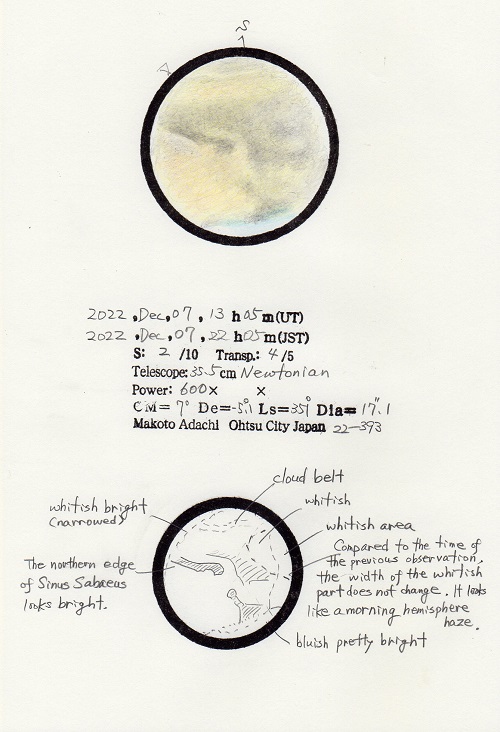 S
A
2022 ,Dec,07 , 13 h 05 m(UT)
2022 ,Dec,07 , 22 h 05 m(JST)
S: 2 /10 Transp.: 4 /5
Telescope: 35.5 cm Newtonian
Power: 600× ×
CM= 7° De=-5°.1 Ls=351° Dia= 17".1
Makoto Adachi Ohtsu City Japan 22-393
cloud belt
whitish bright
(narrowed)
whitish
whitish area
The northern edge
of Sinus Sabaeus
looks bright.
Compared to the time of
the previous observation,
the width of the whitish
part does not change. It looks
like a morning hemisphere
haze.
bluish pretty bright